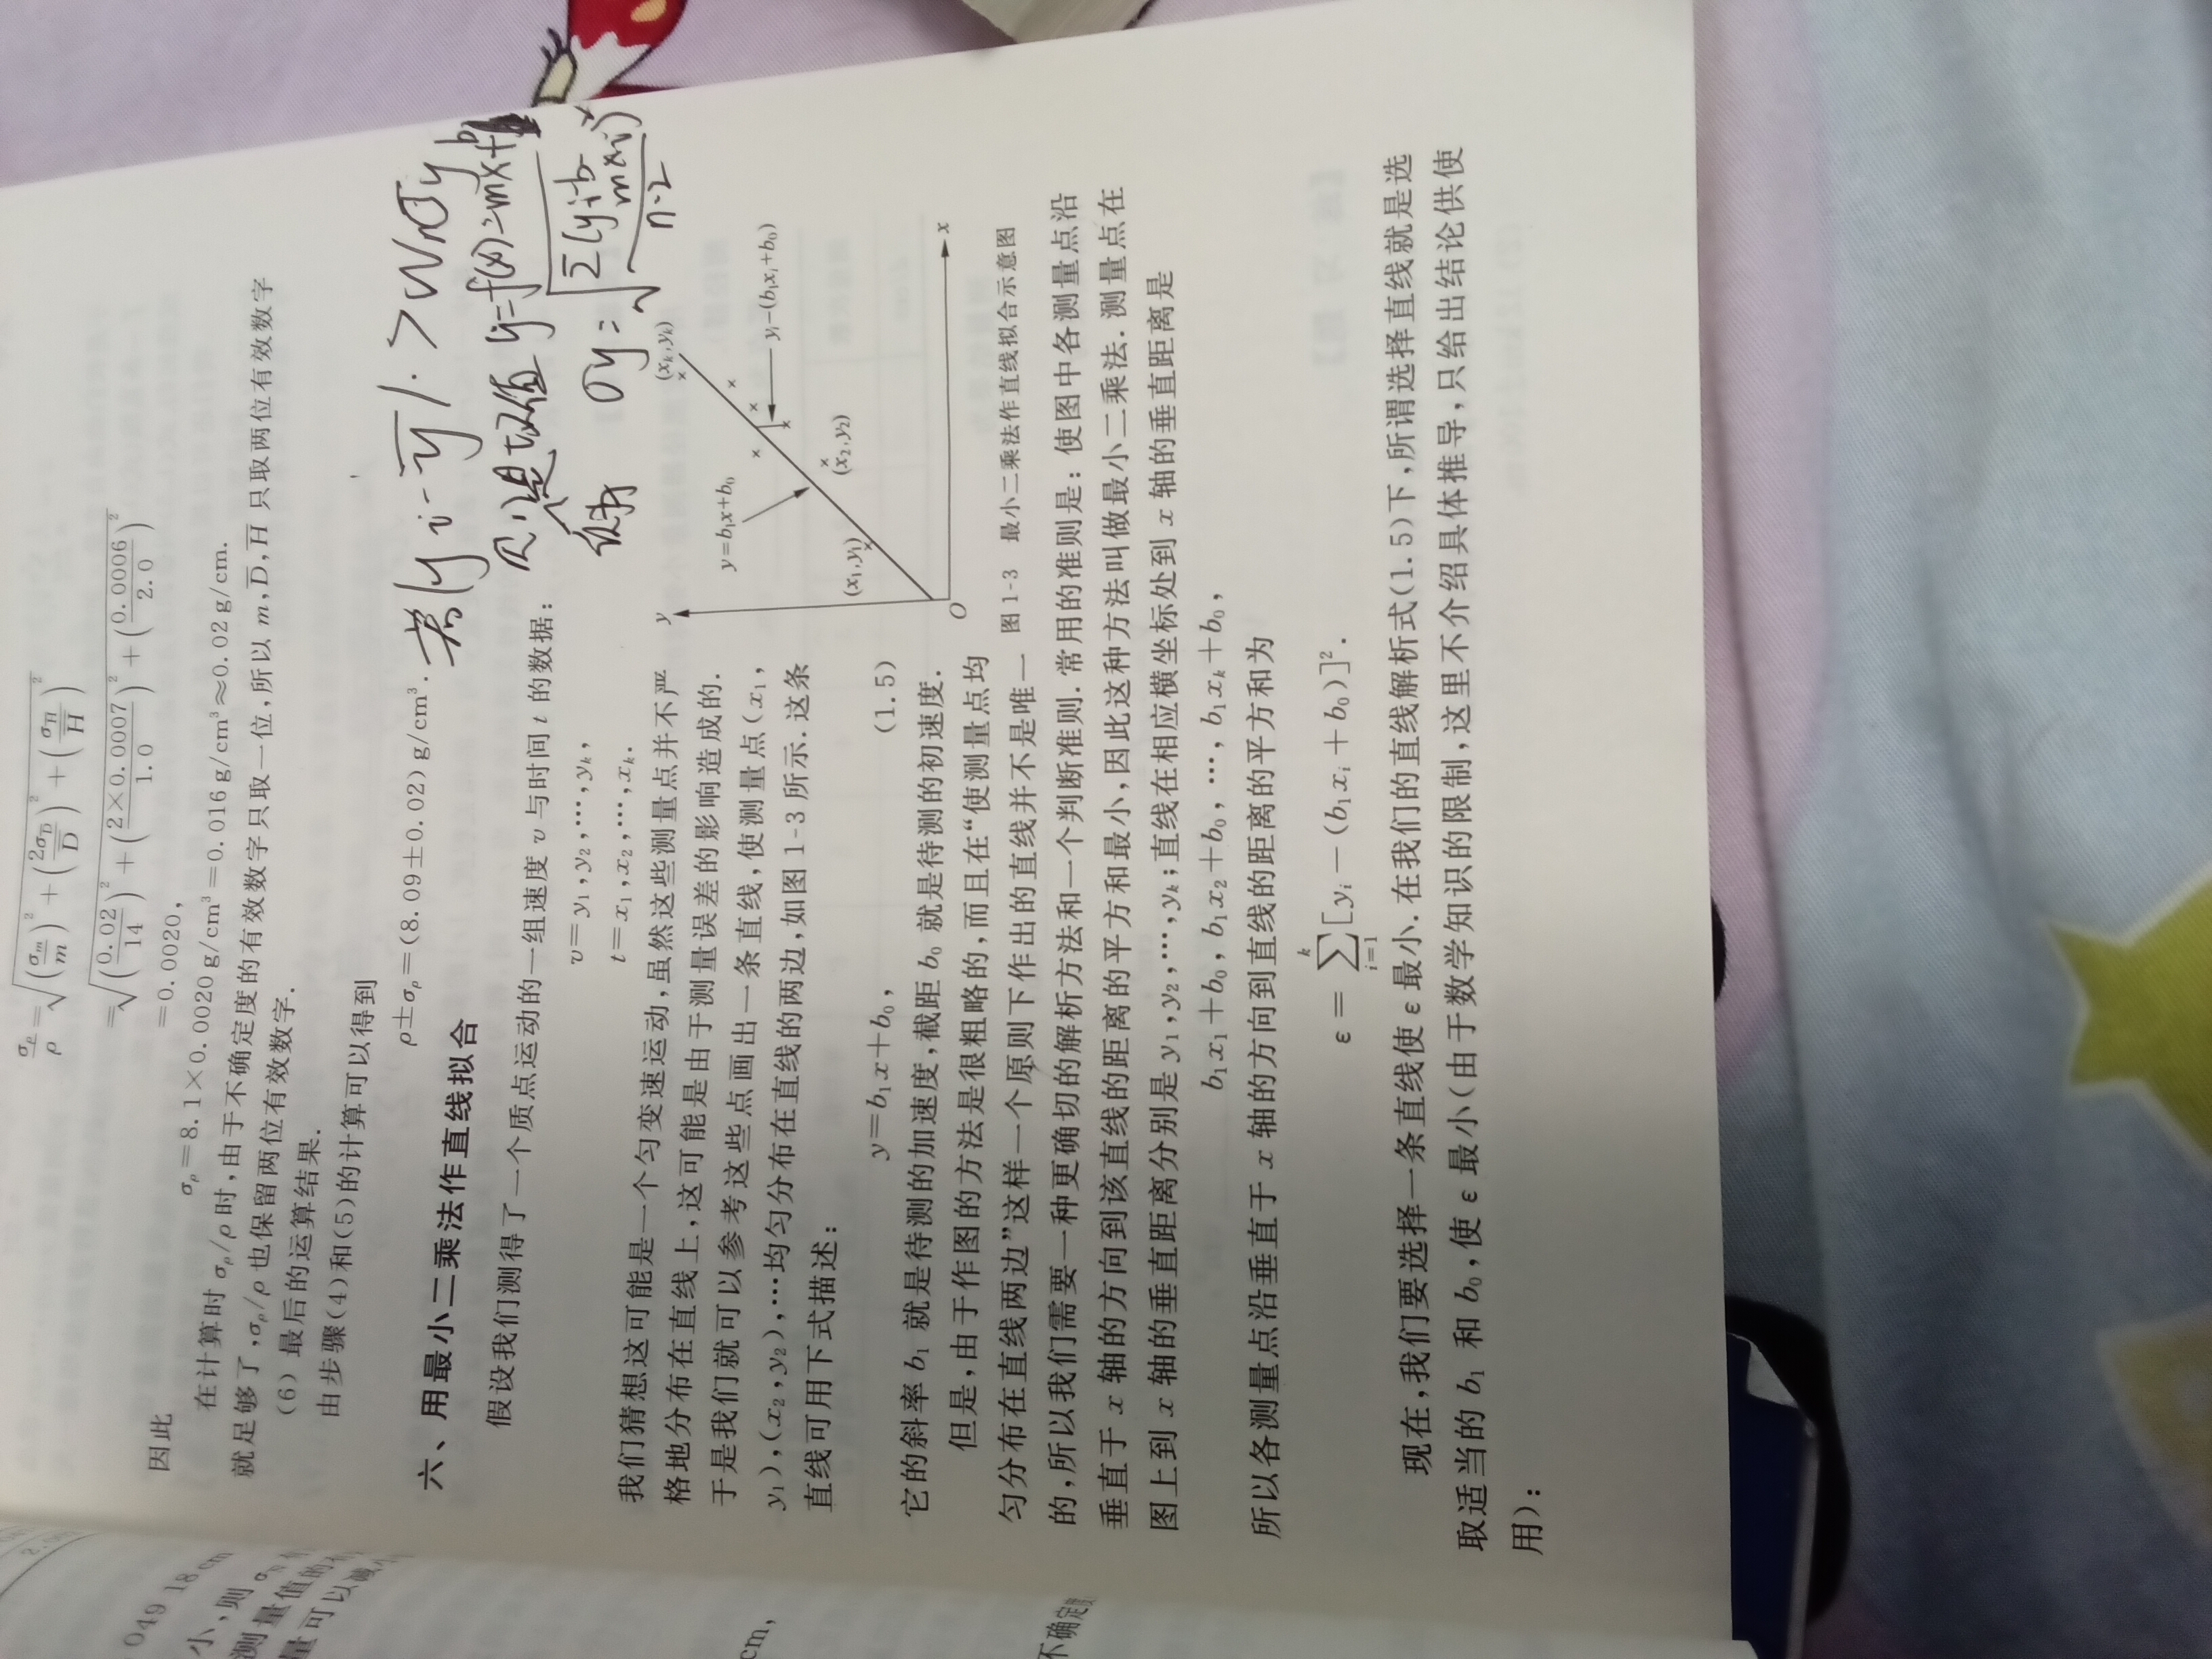 049 18cm
小,则 σ
测量值的
量可以减
cm,
不确定度
σρ/ρ=√((σm/m)²+(2σD̄/D̄)²+(σH̄/H̄)²)
=√((0.02/14)²+(2×0.0007/1.0)²+(0.0006/2.0)²)
=0.0020,
因此
σρ=8.1×0.0020 g/cm³=0.016 g/cm³≈0.02 g/cm.
在计算时 σρ/ρ 时,由于不确定度的有效数字只取一位,所以 m,D̄,H̄ 只取两位有效数字
就足够了,σρ/ρ 也保留两位有效数字.
(6) 最后的运算结果.
由步骤(4)和(5)的计算可以得到
ρ±σρ=(8.09±0.02) g/cm³.
若|yi-ȳ|>Wnσy
只小是切值 y=f(x)=mx+b
σy=√(Σ(yi-b-mxi)²/(n-2))
六、用最小二乘法作直线拟合
假设我们测得了一个质点运动的一组速度 v 与时间 t 的数据:
v=y₁,y₂,…,yₖ,
t=x₁,x₂,…,xₖ.
我们猜想这可能是一个匀变速运动,虽然这些测量点并不严
格地分布在直线上,这可能是由于测量误差的影响造成的.
于是我们就可以参考这些点画出一条直线,使测量点(x₁,
y₁),(x₂,y₂),…均匀分布在直线的两边,如图1-3所示.这条
直线可用下式描述:
y=b₁x+b₀, (1.5)
y
(xₖ,yₖ)
y=b₁x+b₀
yᵢ-(b₁xᵢ+b₀)
(x₂,y₂)
(x₁,y₁)
O
x
图 1-3 最小二乘法作直线拟合示意图
它的斜率 b₁ 就是待测的加速度,截距 b₀ 就是待测的初速度.
但是,由于作图的方法是很粗略的,而且在“使测量点均
匀分布在直线两边”这样一个原则下作出的直线并不是唯一
的,所以我们需要一种更确切的解析方法和一个判断准则.常用的准则是: 使图中各测量点沿
垂直于 x 轴的方向到该直线的距离的平方和最小,因此这种方法叫做最小二乘法.测量点在
图上到 x 轴的垂直距离分别是 y₁,y₂,…,yₖ;直线在相应横坐标处到 x 轴的垂直距离是
b₁x₁+b₀,b₁x₂+b₀,…,b₁xₖ+b₀,
所以各测量点沿垂直于 x 轴的方向到直线的距离的平方和为
ε=∑ᵢ₌₁ᵏ[yᵢ-(b₁xᵢ+b₀)]².
现在,我们要选择一条直线使 ε 最小.在我们的直线解析式(1.5)下,所谓选择直线就是选
取适当的 b₁ 和 b₀,使 ε 最小(由于数学知识的限制,这里不介绍具体推导,只给出结论供使
用):